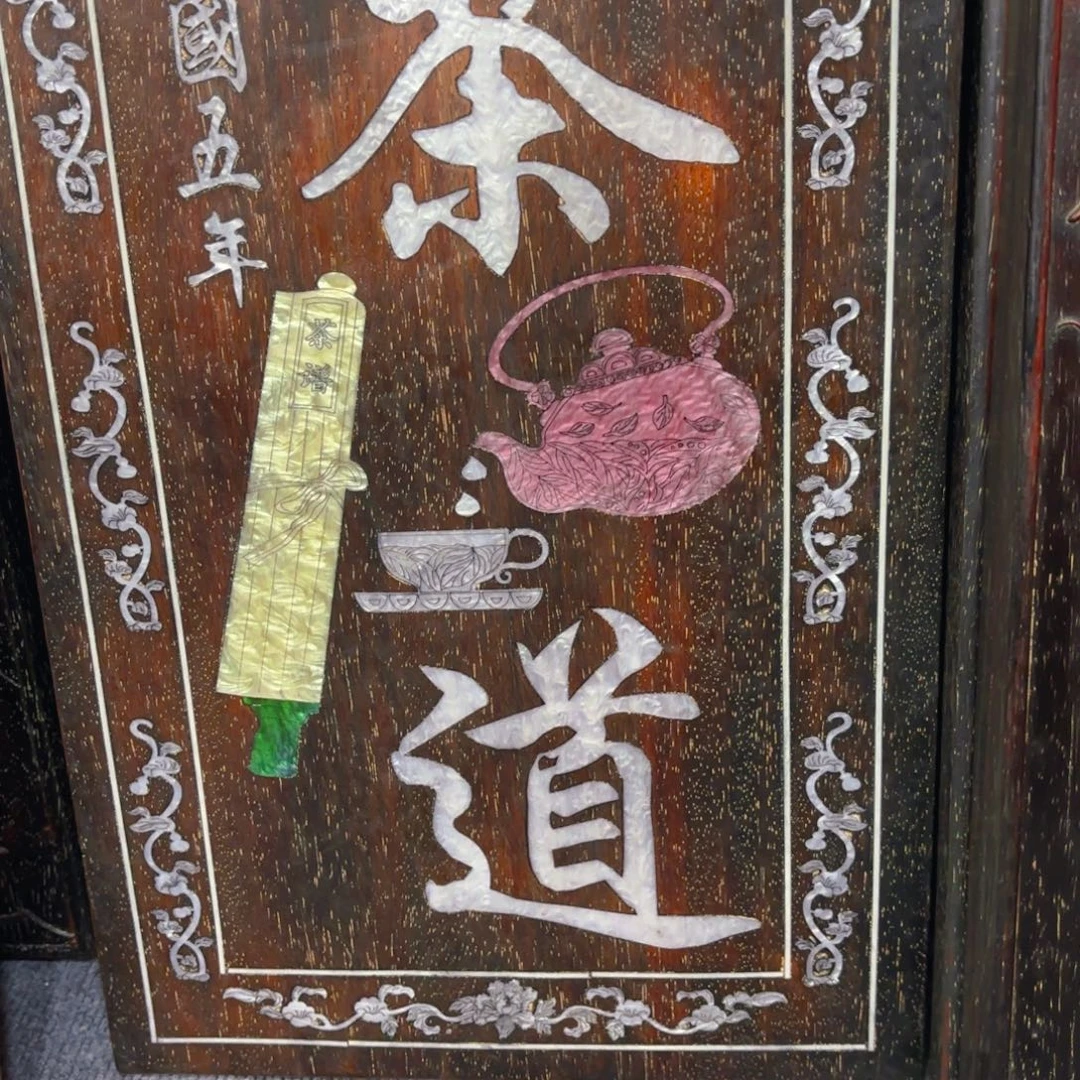 茶道
國五年
茶譜